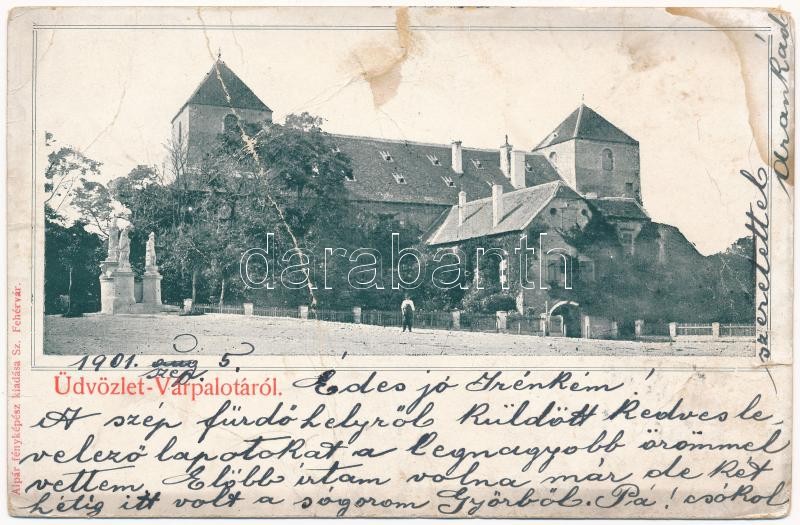 Üdvözlet-Várpalotáról.
1901. aug 5.
szep.
Édes jó Irénkém!
A szép fürdőhelyről küldött kedves le-
velező lapotokat a legnagyobb örömmel
vettem. Előbb irtam volna már de két
hétig itt volt a sógorom Győrből. Pá! csókol
szeretettel
Arankád
Alpár fényképész kiadása Sz. Fehérvár.
darabanth